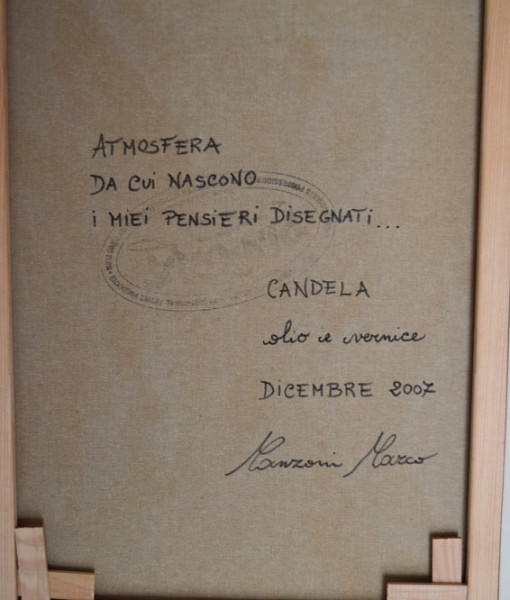 ATMOSFERA
DA CUI NASCONO
I MIEI PENSIERI DISEGNATI...
CANDELA
olio e vernice
DICEMBRE 2007
Manzoni Marco